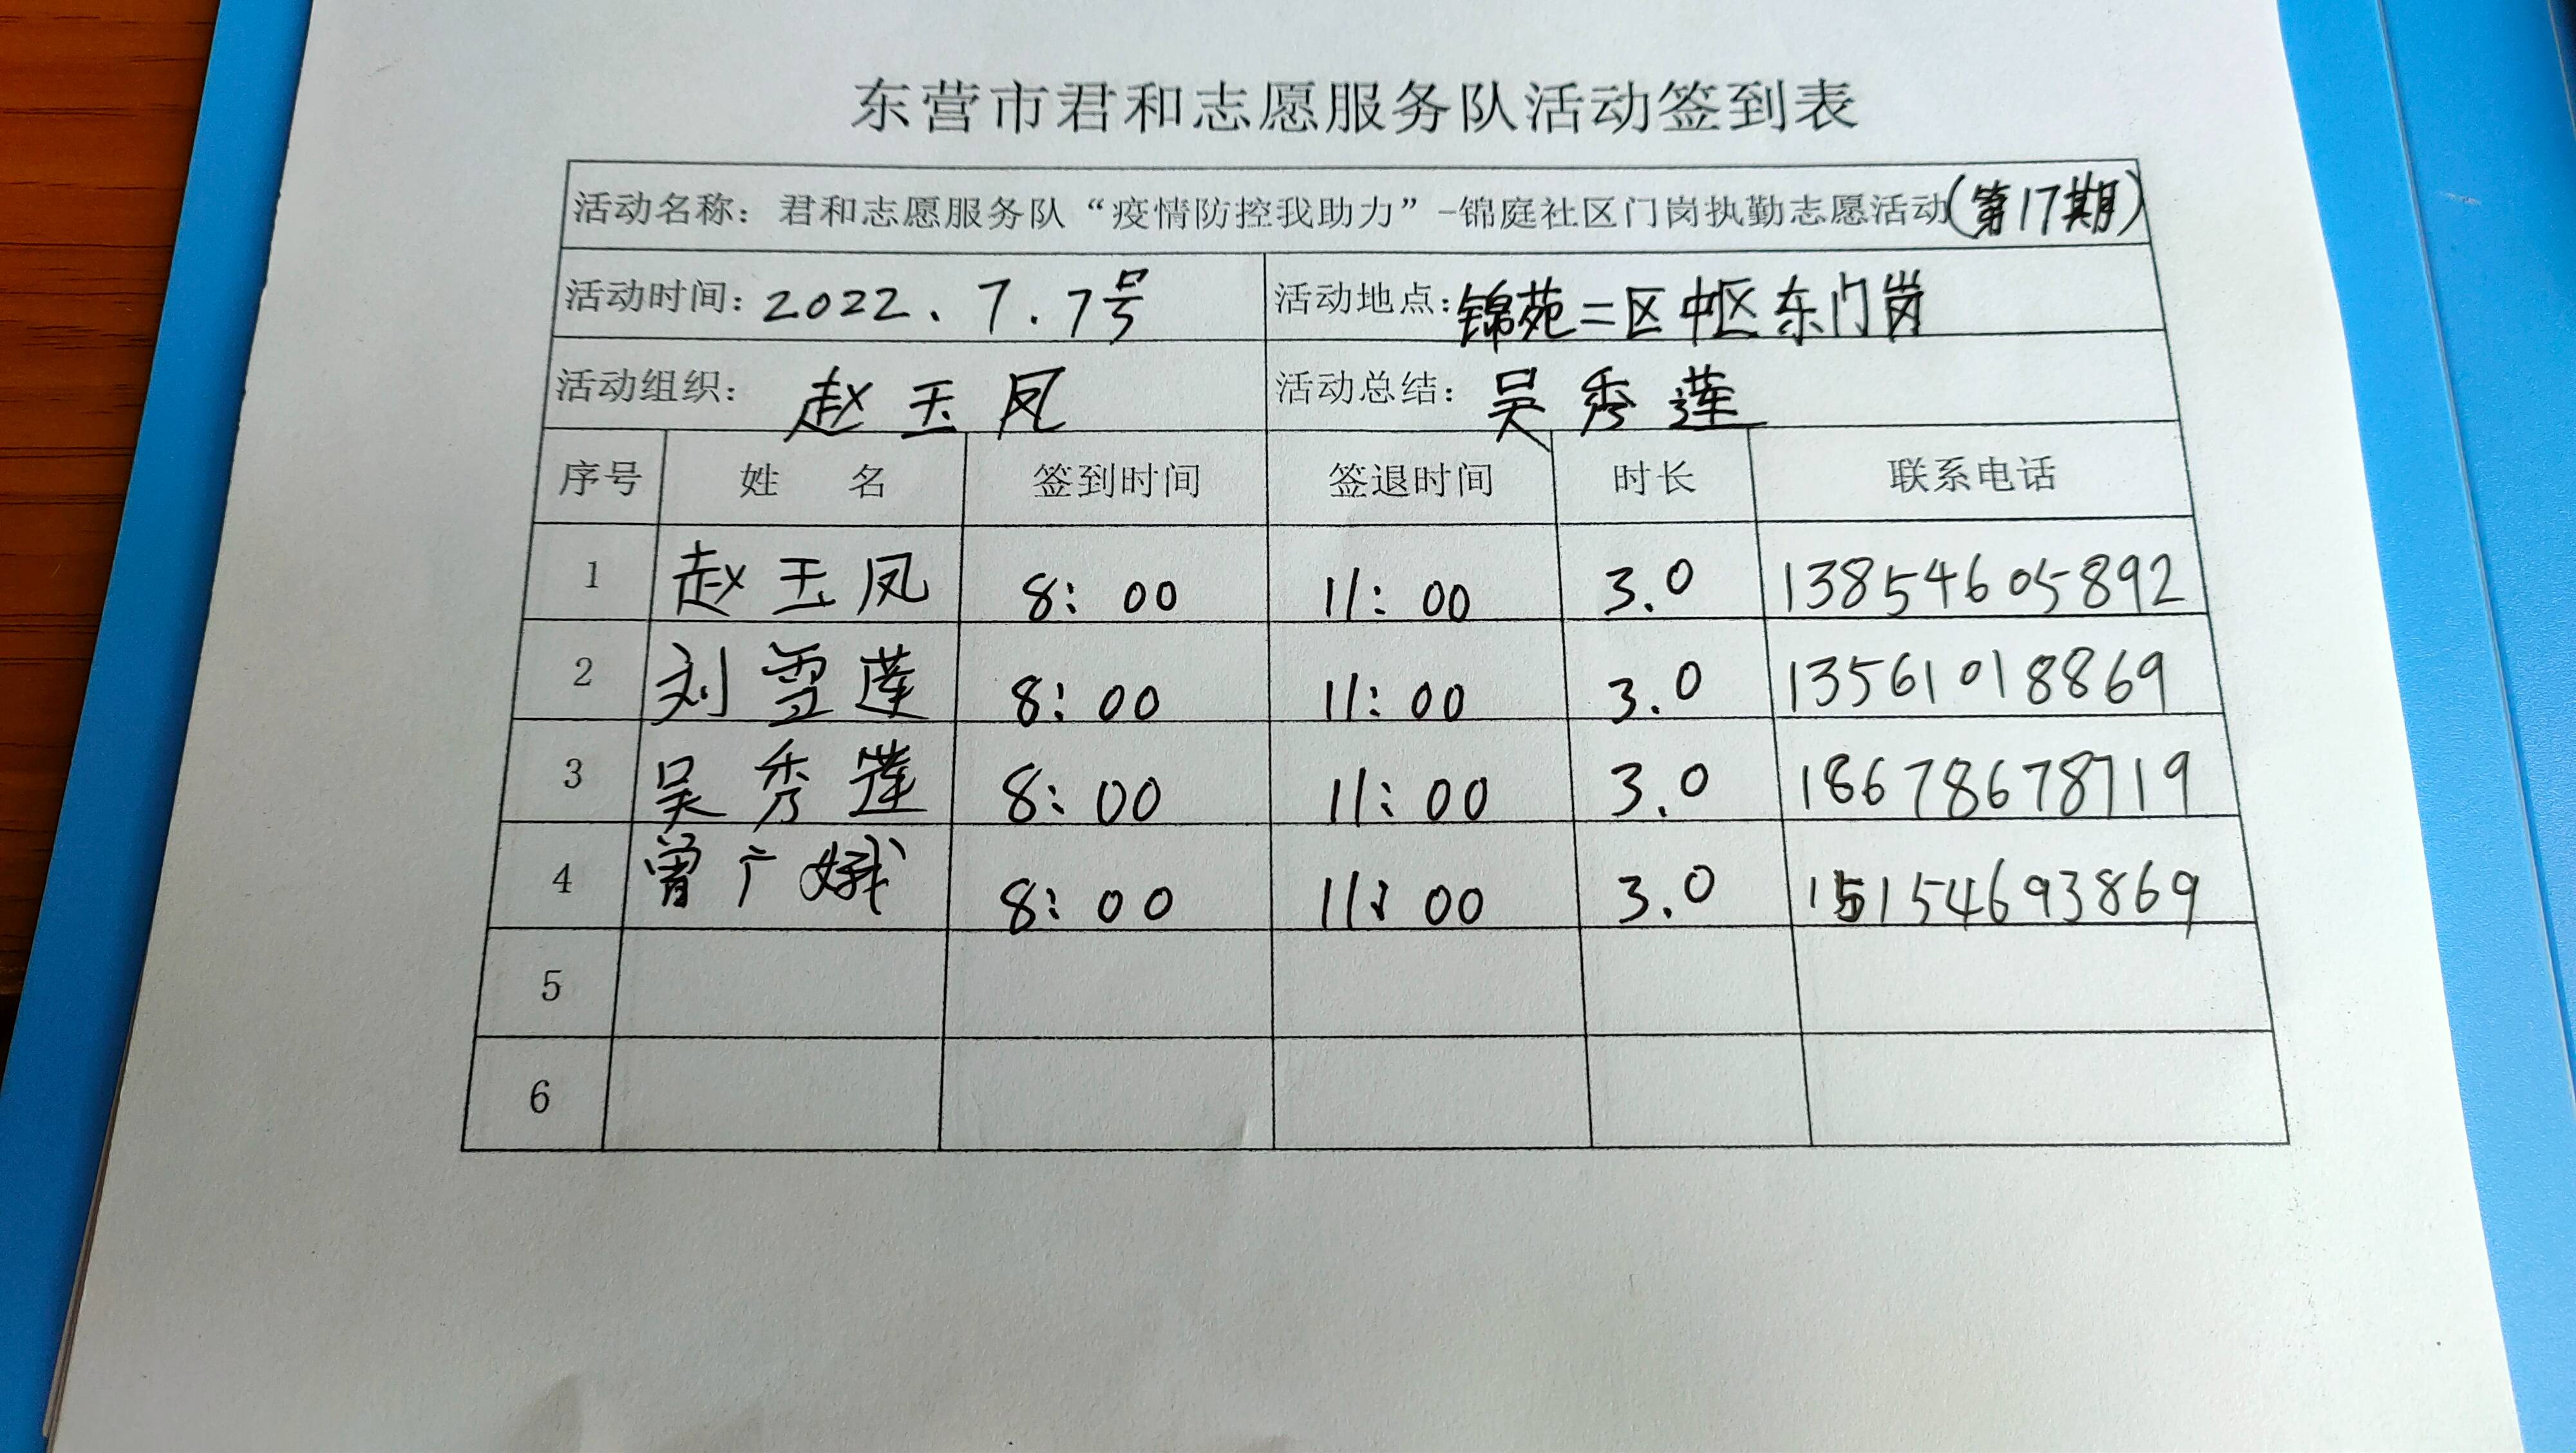 东营市君和志愿服务队活动签到表
活动名称：君和志愿服务队“疫情防控我助力”-锦庭社区门岗执勤志愿活动(第17期)
活动时间：2022.7.7号 活动地点：锦苑二区中区东门岗
活动组织：赵玉凤 活动总结：吴秀莲
序号 姓 名 签到时间 签退时间 时长 联系电话
1 赵玉凤 8：00 11：00 3.0 13854605892
2 刘雪莲 8：00 11：00 3.0 13561018869
3 吴秀莲 8：00 11：00 3.0 18678678719
4 曾广娥 8：00 11：00 3.0 15154693869
5
6